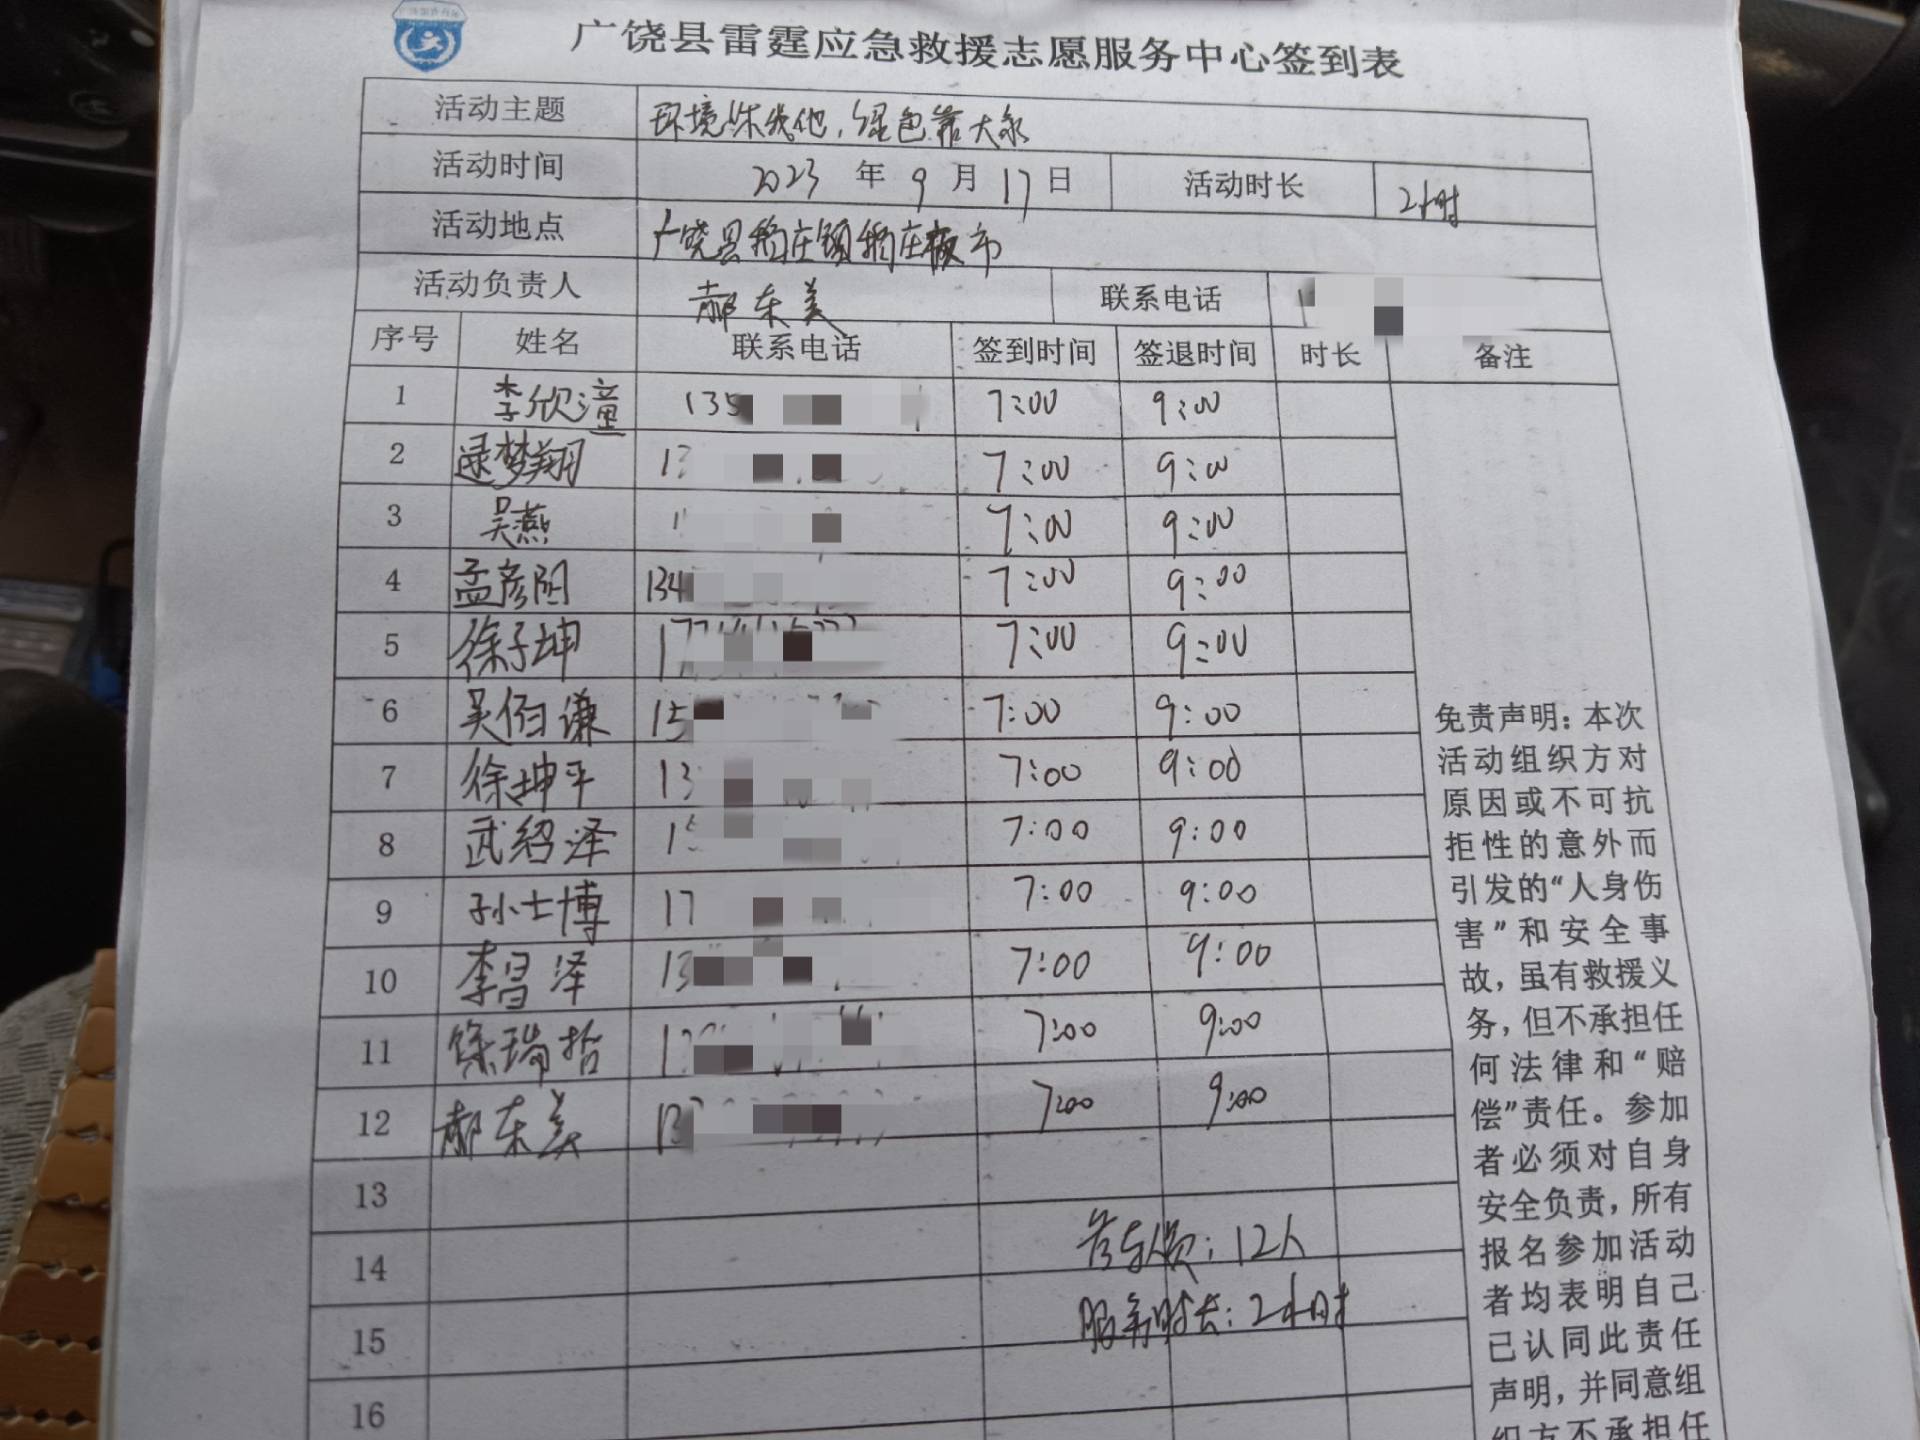 广饶县雷霆应急救援志愿服务中心签到表
活动主题 环境 你我他，绿色靠大家
活动时间 2023 年 9 月 17 日 活动时长 2小时
活动地点 广饶县稻庄镇稻庄 市
活动负责人 郝东美 联系电话
序号 姓名 联系电话 签到时间 签退时间 时长 备注
1 李欣潼 135 7:00 9:00
2 逯梦翔 13 7:00 9:00
3 吴燕 1 7:00 9:00
4 孟彦 134 7:00 9:00
5 徐子坤 17 7:00 9:00
6 吴佰谦 15 7:00 9:00
7 徐坤平 13 7:00 9:00
8 武绍泽 15 7:00 9:00
9 孙士博 17 7:00 9:00
10 李昌泽 13 7:00 9:00
11 徐瑞哲 1 7:00 9:00
12 郝东美 13 7:00 9:00
13
14 参与人员：12人
15 服务时长：2小时
16
免责声明：本次
活动组织方对
原因或不可抗
拒性的意外而
引发的“人身伤
害”和安全事
故，虽有救援义
务，但不承担任
何法律和“赔
偿”责任。参加
者必须对自身
安全负责，所有
报名参加活动
者均表明自己
已认同此责任
声明，并同意组
织方不承担任